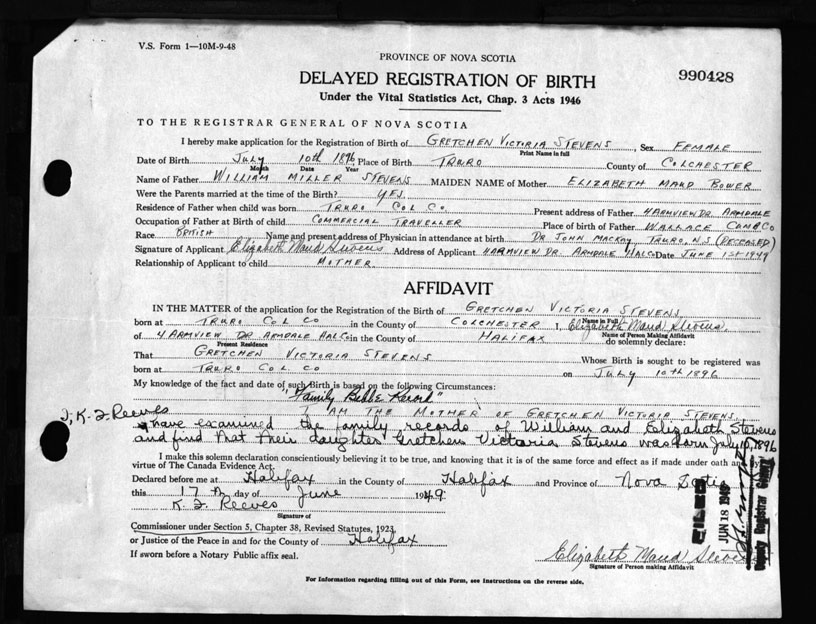 V.S. Form 1—10M-9-48
PROVINCE OF NOVA SCOTIA
DELAYED REGISTRATION OF BIRTH
990428
Under the Vital Statistics Act, Chap. 3 Acts 1946
TO THE REGISTRAR GENERAL OF NOVA SCOTIA
I hereby make application for the Registration of Birth of GRETCHEN VICTORIA STEVENS, Sex FEMALE
Print Name in full
Date of Birth JULY 10th 1896, Place of Birth TRURO County of COLCHESTER
Month Date Year
Name of Father WILLIAM MILLER STEVENS MAIDEN NAME of Mother ELIZABETH MAUD BOWER
Were the Parents married at the time of the Birth? YES
Residence of Father when child was born TRURO COL CO Present address of Father 4 ARMVIEW DR. ARMDALE
Occupation of Father at Birth of child COMMERCIAL TRAVELLER Place of birth of Father WALLACE CUMB CO
Race BRITISH Name and present address of Physician in attendance at birth DR JOHN MACKAY, TRURO, N.S (DECEASED)
Signature of Applicant Elizabeth Maud Stevens Address of Applicant 4 ARMVIEW DR. ARMDALE HAL CO Date JUNE 1ST 1949
Relationship of Applicant to child MOTHER
AFFIDAVIT
IN THE MATTER of the application for the Registration of the Birth of GRETCHEN VICTORIA STEVENS
Name in Full
born at TRURO COL CO in the County of COLCHESTER I, Elizabeth Maud Stevens
Name of Person Making Affidavit
of 4 ARMVIEW DR ARMDALE HAL CO in the County of HALIFAX do solemnly declare:
Present Residence
That GRETCHEN VICTORIA STEVENS Whose Birth is sought to be registered was
born at TRURO COL CO on JULY 10th 1896
My knowledge of the fact and date of such Birth is based on the following Circumstances:
"Family Bible Record"
I AM THE MOTHER OF GRETCHEN VICTORIA STEVENS
I, K. F. Reeves
have examined the family records of William and Elizabeth Stevens
and find that their daughter Gretchen Victoria Stevens was born July 10, 1896
I make this solemn declaration conscientiously believing it to be true, and knowing that it is of the same force and effect as if made under oath and by
virtue of The Canada Evidence Act.
Declared before me at Halifax in the County of Halifax and Province of Nova Scotia
this 17th day of June 1949
K. F. Reeves
Signature of
Commissioner under Section 5, Chapter 38, Revised Statutes, 1923
or Justice of the Peace in and for the County of Halifax
If sworn before a Notary Public affix seal.
Elizabeth Maud Stevens
Signature of Person making Affidavit
FILED
JUN 18 1949
Deputy Registrar General
For Information regarding filling out of this Form, see Instructions on the reverse side.